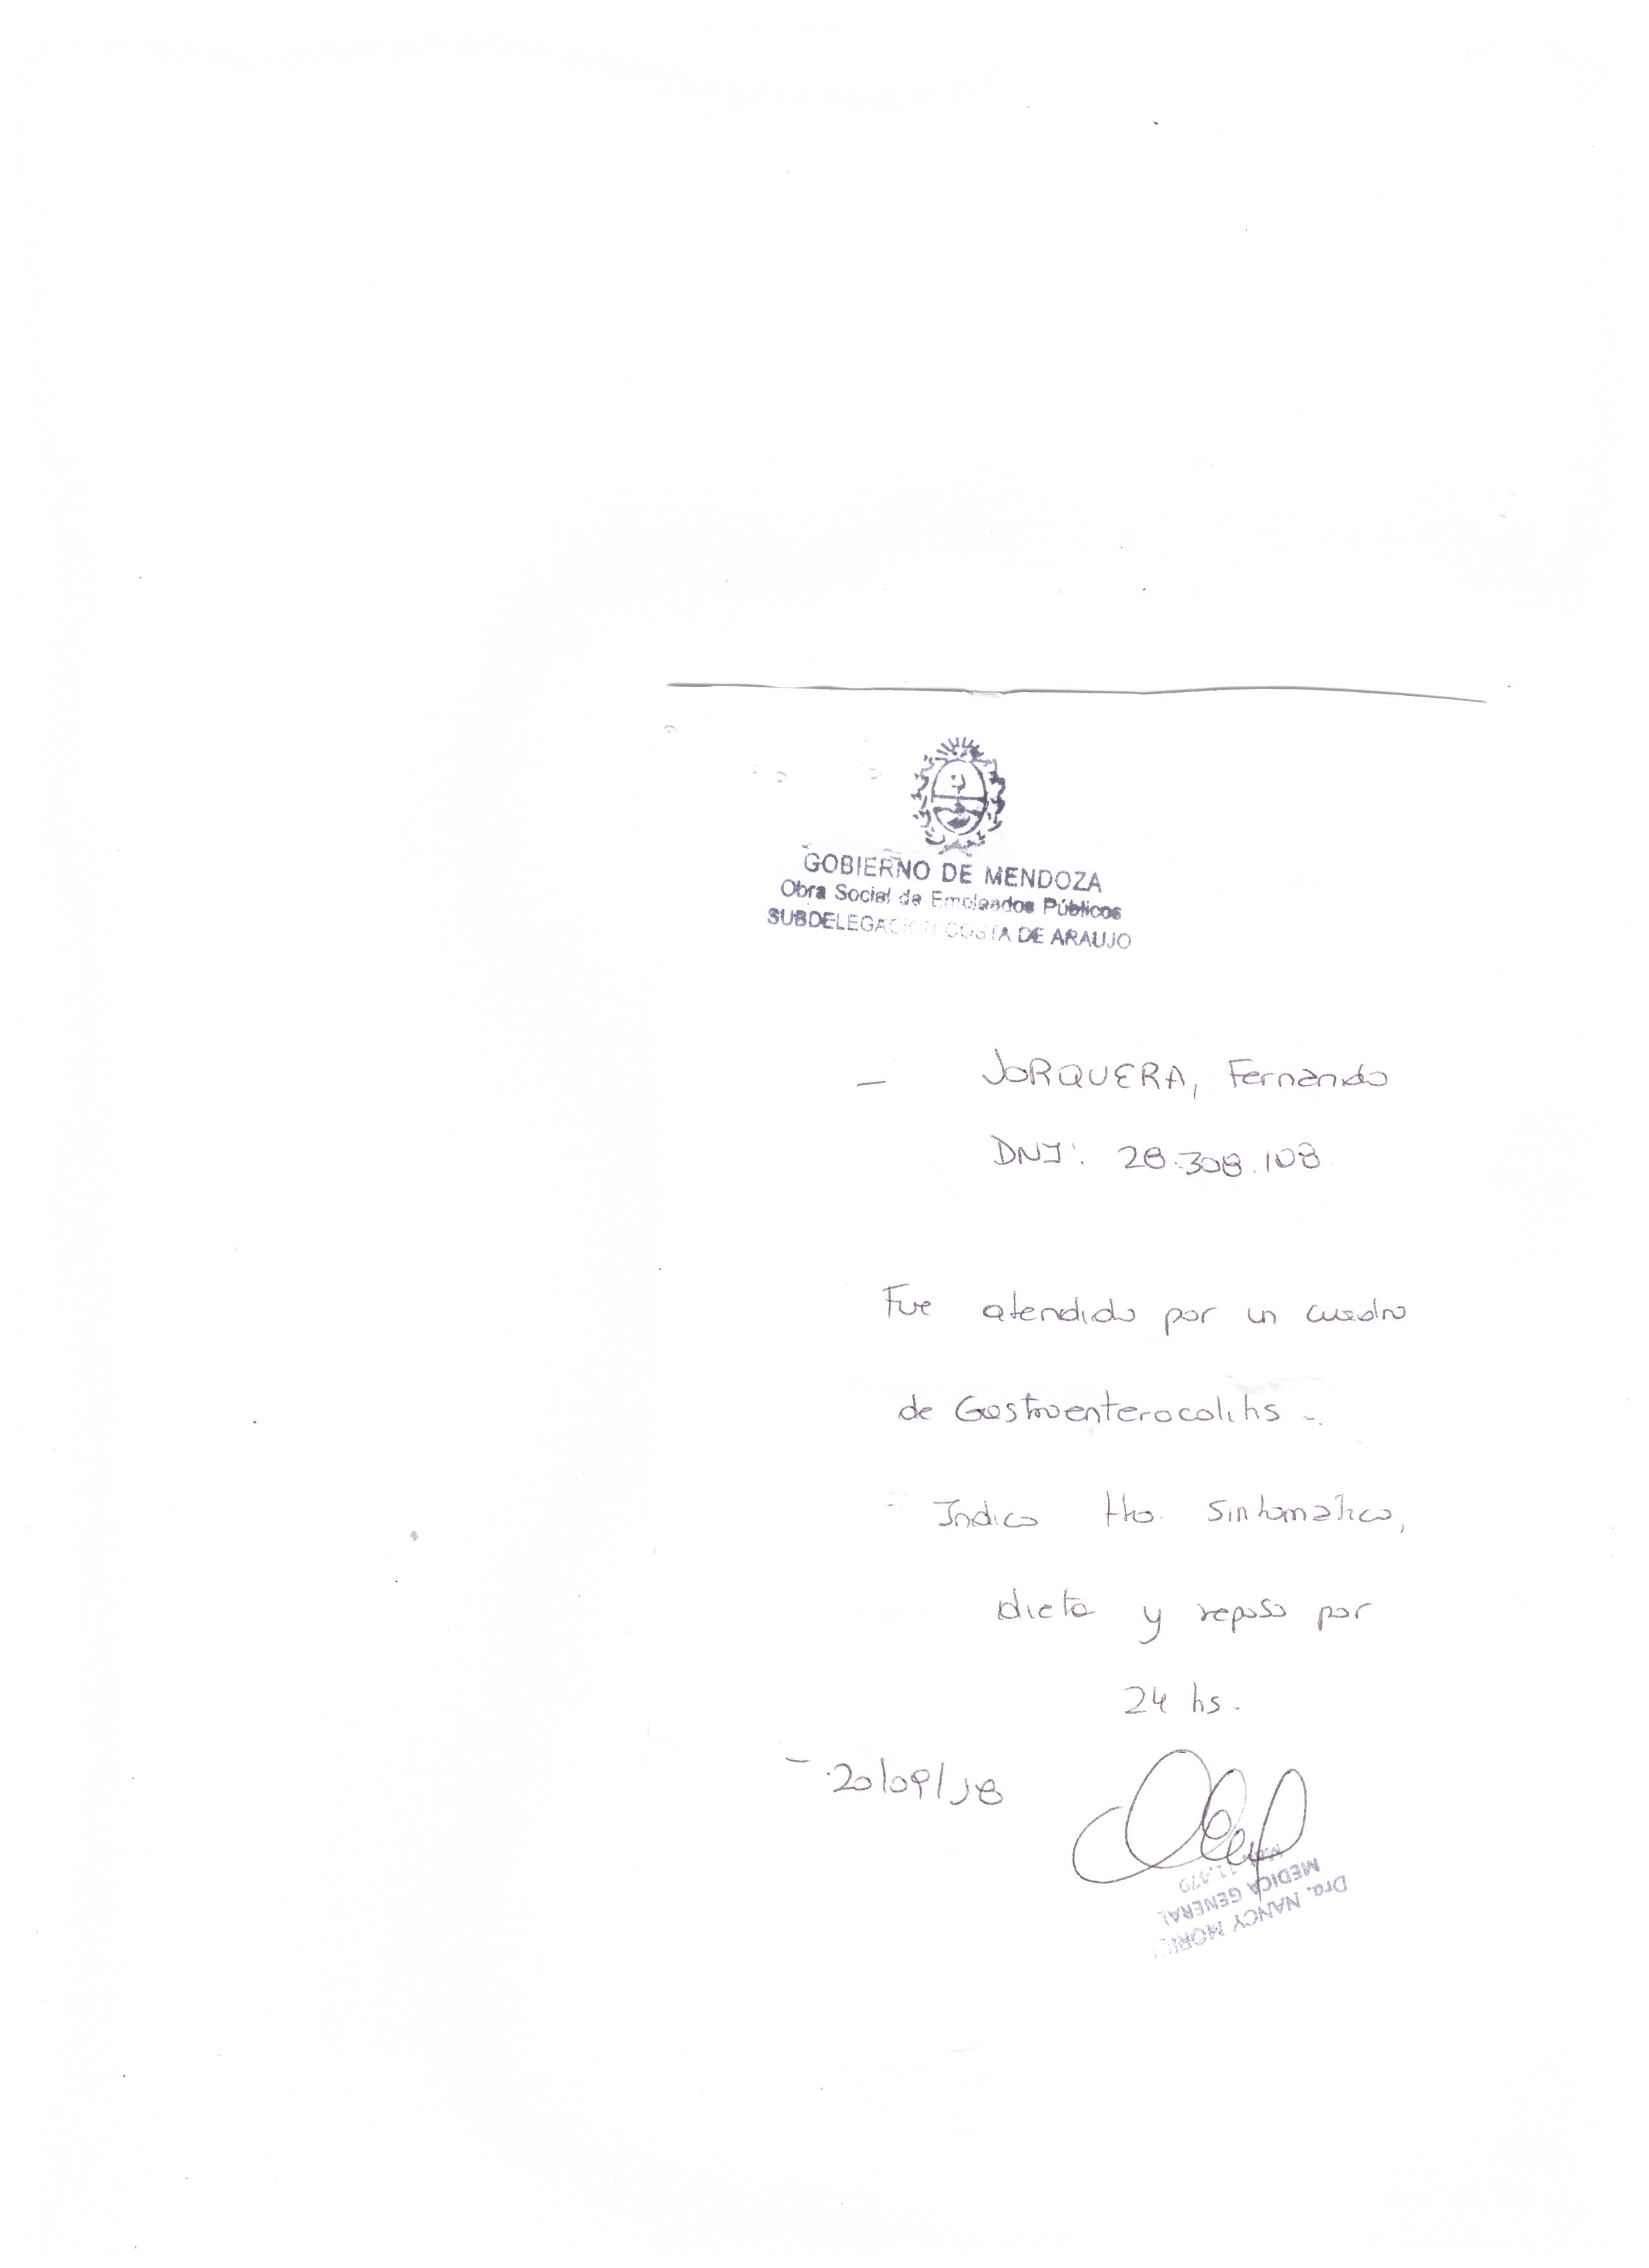 GOBIERNO DE MENDOZA
Obra Social de Empleados Públicos
SUBDELEGACION COSTA DE ARAUJO
– JORQUERA, Fernando
DNI: 28.308.108
Fue atendido por un cuadro
de Gastroenterocolitis -.
- Indico tto. sintomático,
dieta y reposo por
24 hs.
- 20/09/18
Dra. NANCY
MEDICA GENERAL
Mat. 11.479